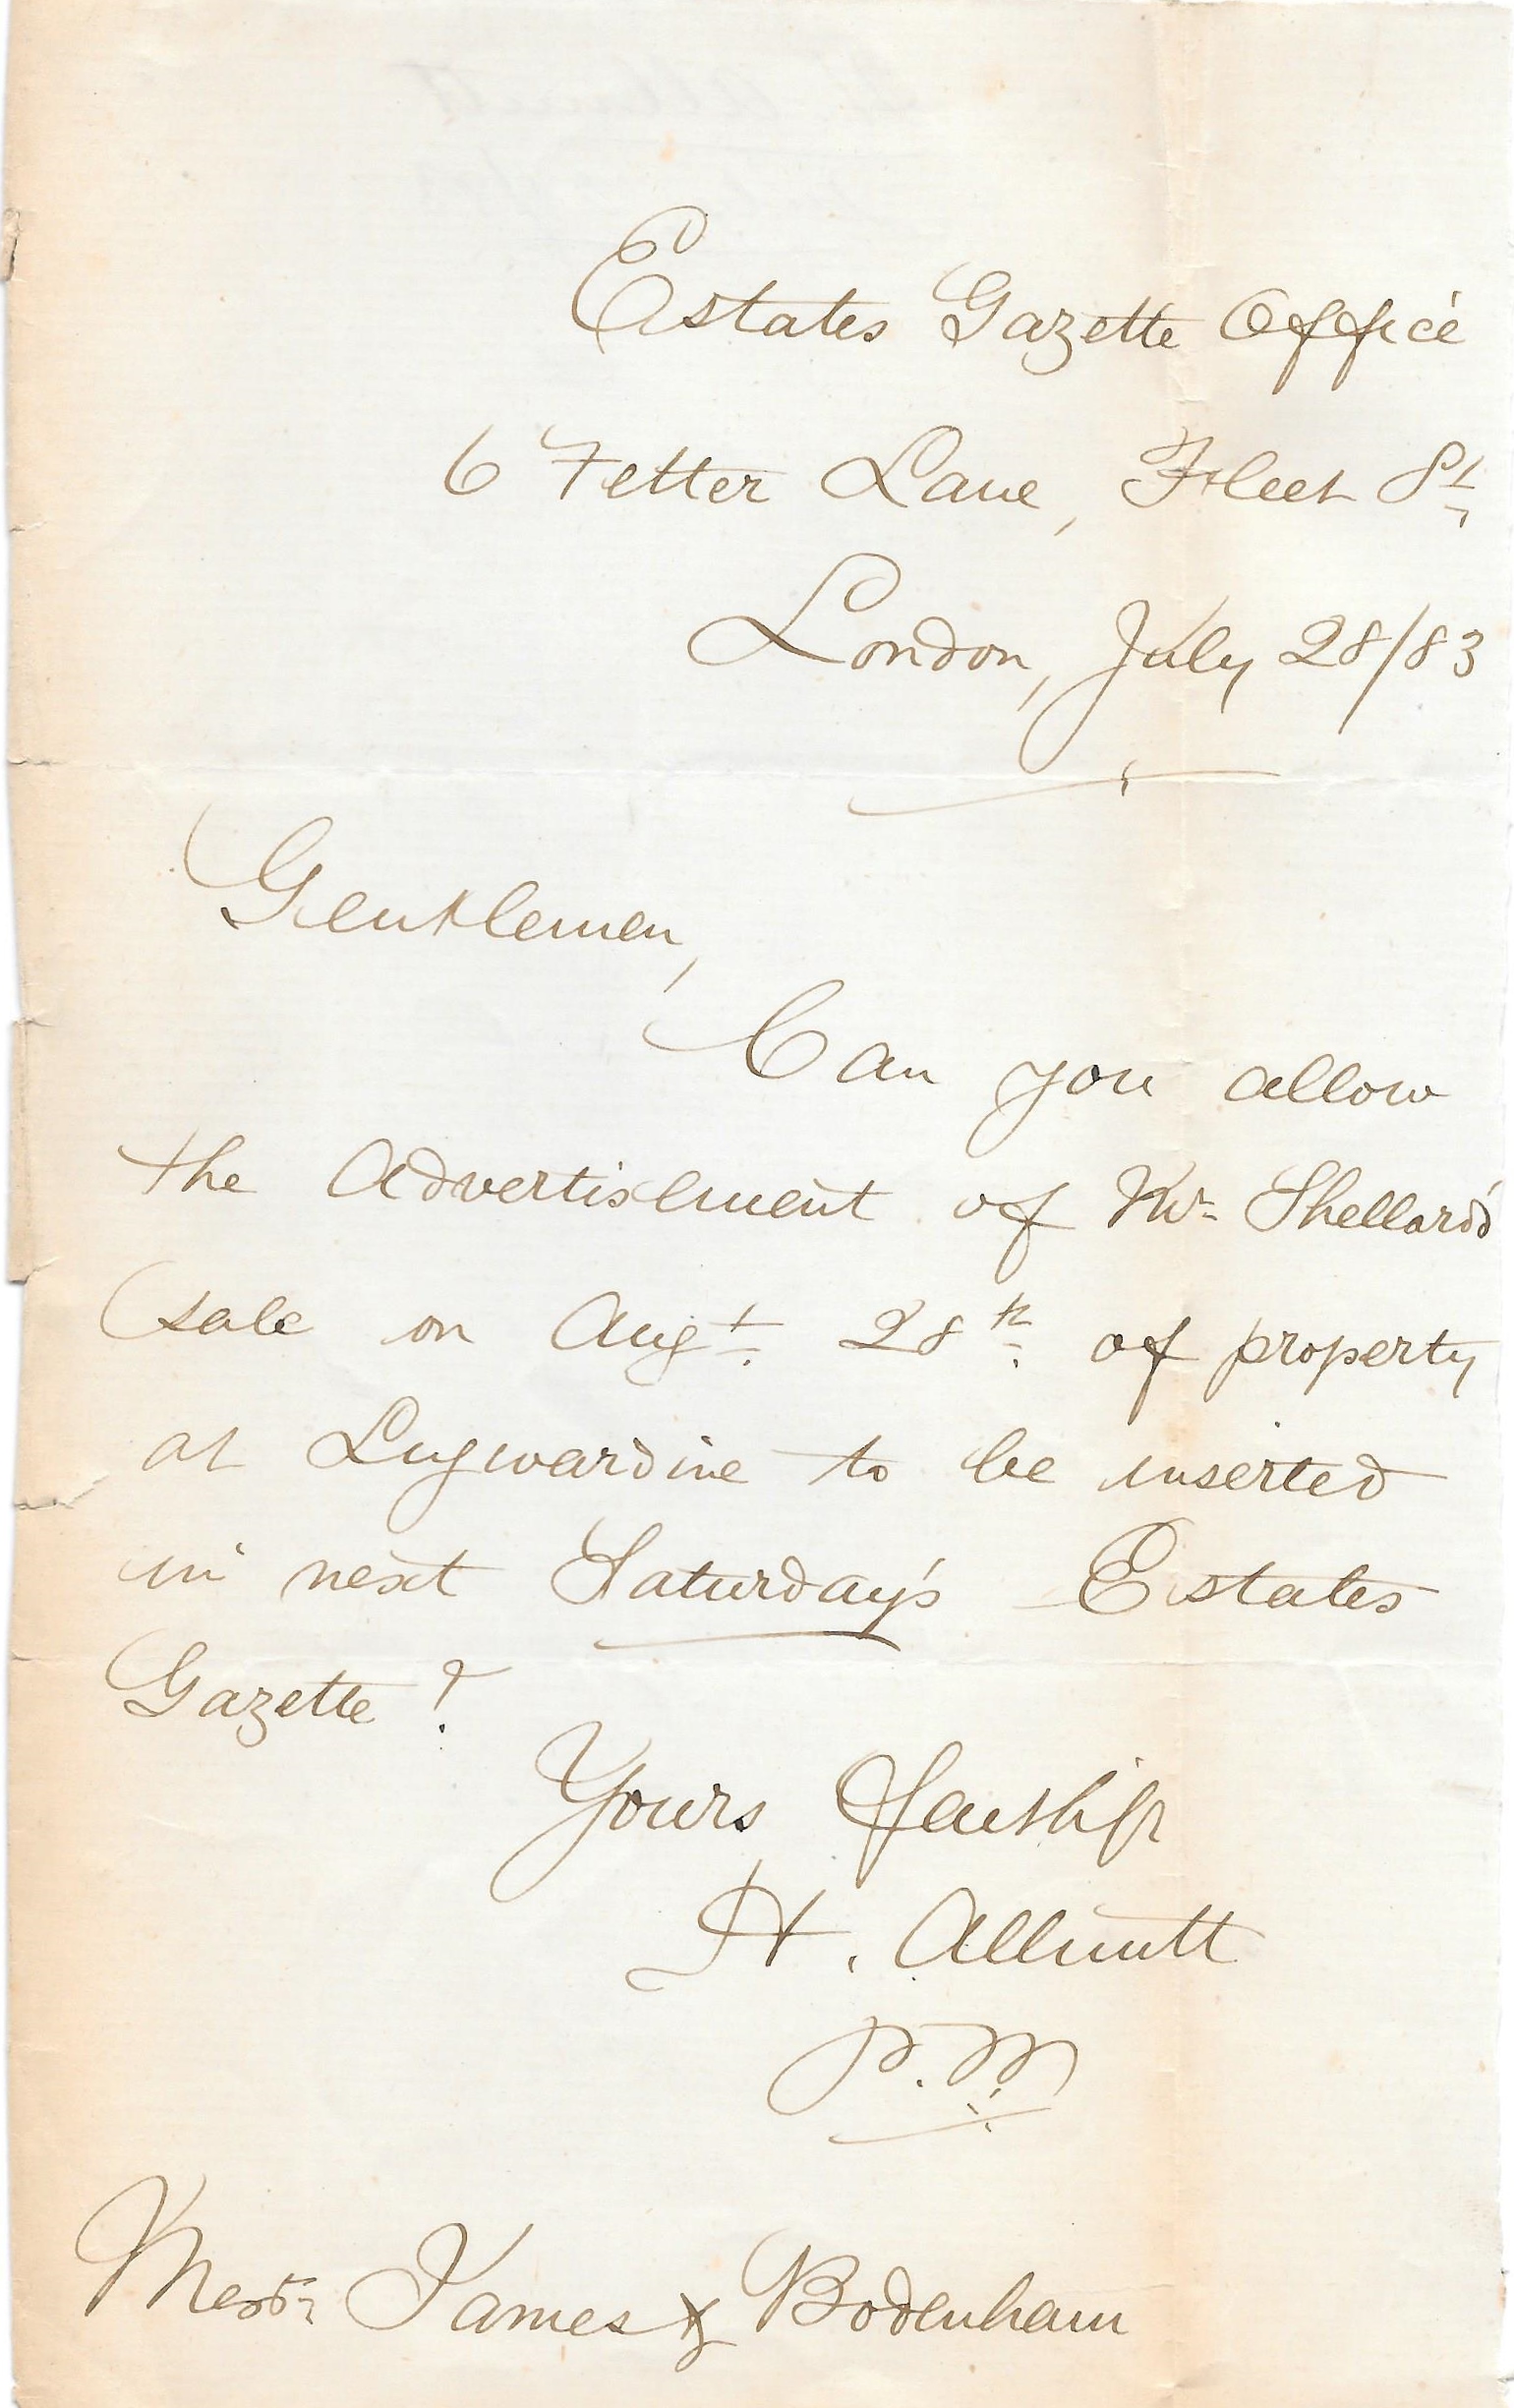 Estates Gazette Office
6 Fetter Lane, Fleet St,
London, July 28/83
Gentlemen,
Can you allow
the Advertisement of Mr. Shellard's
sale on Augt. 28th. of property
at Lugwardine to be inserted
in next Saturday's Estates
Gazette?
Yours faithfy
H. Allnutt
P.M.
Messrs. James & Bodenham